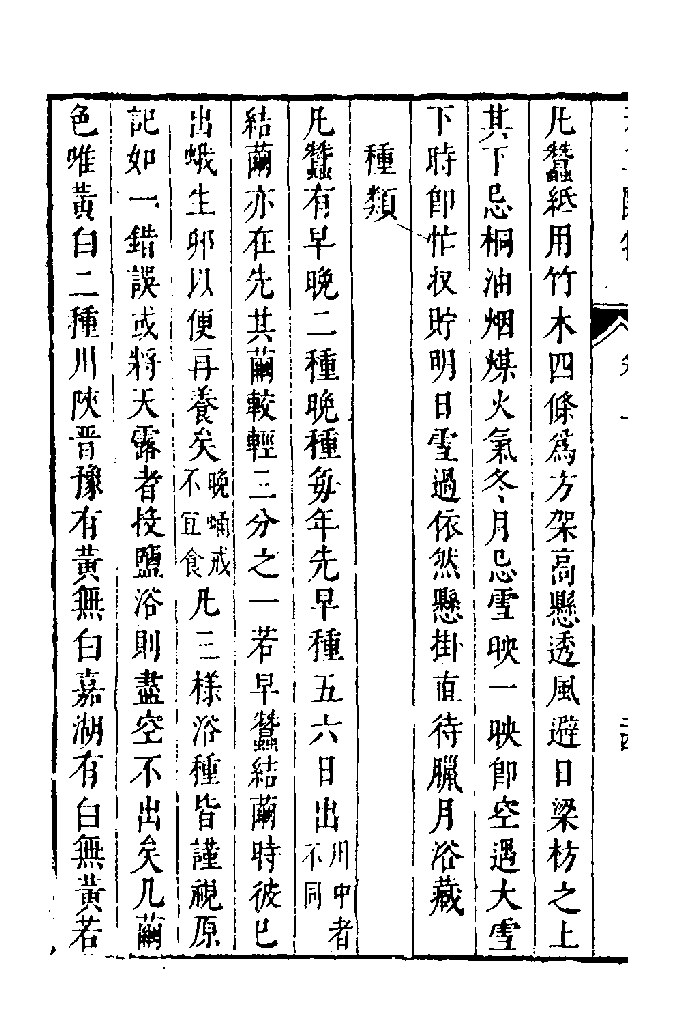 凡蠶紙用竹木四條爲方架高懸透風避日梁枋之上
其下忌桐油烟煤火氣冬月忌雪映一映卽空遇大雪
下時卽忙收貯明日雪過依然懸掛直待臘月浴藏
種類
凡蠶有早晚二種晚種每年先早種五六日出川中者不同
結繭亦在先其繭較輕三分之一若早蠶結繭時彼已
出蛾生卵以便再養矣晚蛹戒不宜食凡三樣浴種皆謹視原
記如一錯誤或將天露者投鹽浴則盡空不出矣凡繭
色唯黃白二種川陝晋豫有黃無白嘉湖有白無黃若